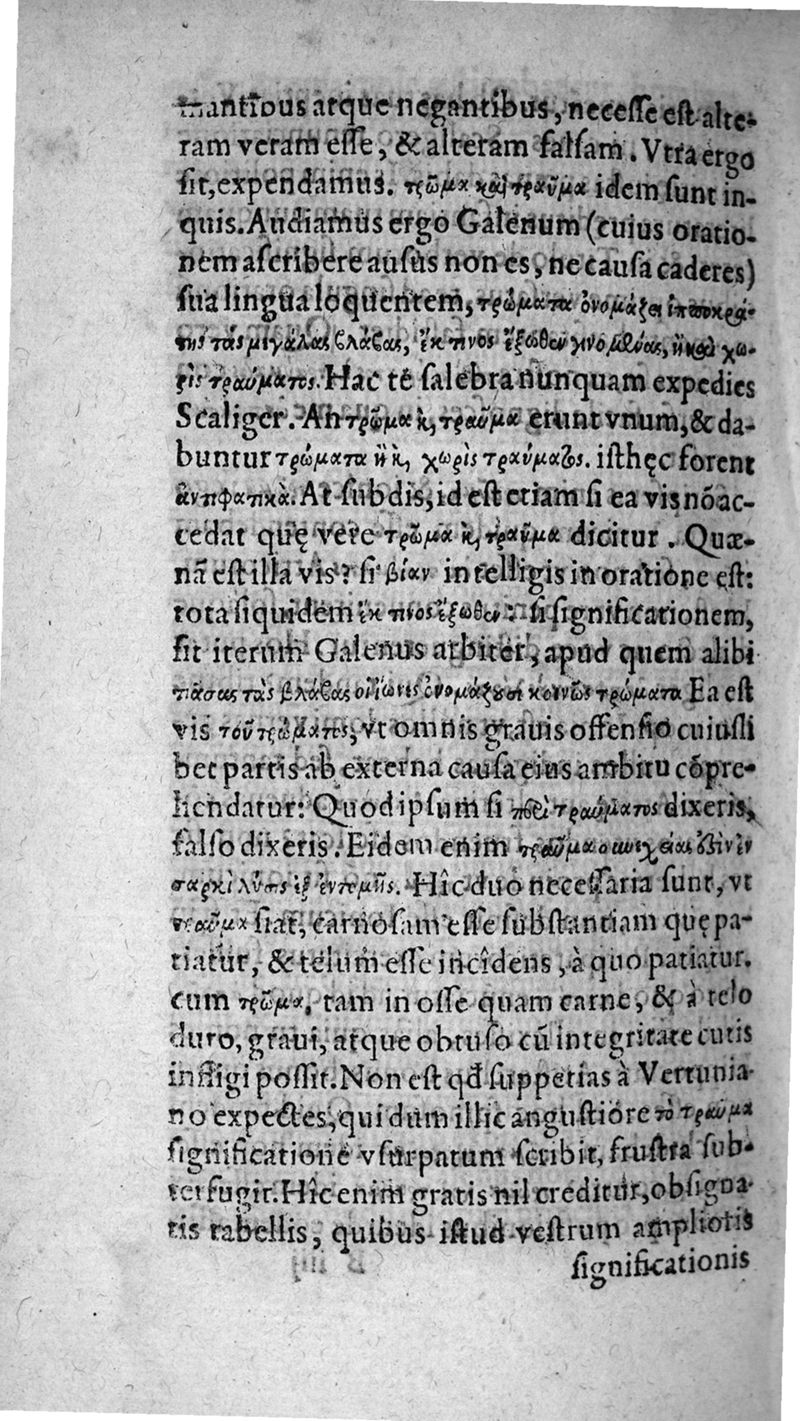 mantibus atque negantibus, necesse est alte-
ram veram esse, & alteram falsam. Vtra ergo
sit, expendamus. τρῶμα καὶ τραῦμα idem sunt in-
quis. Audiamus ergo Galenum (cuius oratio-
nem ascribere ausus non es, ne causa caderes)
sua lingua loquentem, τρώματα ὀνομάζει ἱπποκρά-
της τὰς μεγάλας βλάβας, ἔκ τινος ἔξωθεν γινομένας, ἢ καὶ χω-
ρὶς τραύματος. Hac te salebra nunquam expedies
Scaliger. An τρῶμα κ, τραῦμα erunt vnum, & da-
buntur τρώματα ἢ κ, χωρὶς τραύματος. isthęc forent
ἀντιφατικὰ. At subdis, id est etiam si ea vis nõ ac-
cedat quę vere τρῶμα κ, τραῦμα dicitur. Quæ-
nã est illa vis? si βίαν intelligis in oratione ęst:
tota siquidem ἔκ τινος ἔξωθεν: si significationem,
sit iterum Galenus arbiter, apud quem alibi
πάσας τὰς βλάβας οἱ ἴωνες ὀνομάζουσι κοινῶς τρώματα Ea est
vis τοῦ τρώματος, vt omnis grauis offensio cuiusli
bet partis ab externa causa eius ambitu cõpre-
hendatur: Quod ipsum si τραύματος dixeris,
falso dixeris. Eidem enim τραῦμα ἐν
σαρκὶ λύσις Hîc duo necessaria sunt, vt
τραῦμα fiat, carnosam esse substantiam quę pa-
tiatur, & telum esse incîdens, à quo patiatur.
cum τρῶμα, tam in osse quam carne, & à telo
duro, graui, atque obtuso cũ integritate cutis
infligi possit. Non est qđ suppetias à Vertunia-
no expectes, qui dum illic angustiore τὸ τραῦμα
significatione vsurpatum scribit, frustra sub-
terfugit. Hîc enim gratis nil creditur, obsigna-
tis tabellis, quibus istud vestrum amplioris
significationis